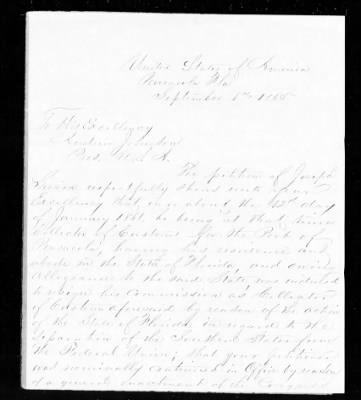 United States of America
Pensacola Fla
September 1865
To His Excellency
Andrew Johnson
Pres. U.S.A.
The petition of Joseph
respectfully shows unto your
Excellency that on or about the day
of January 1861, he being at that time
Collector of Customs for the Port of
Pensacola, having his residence and
abode in the State of Florida, and owing
Allegiance to the said State, was induced
to resign his Commission as Collector
of Customs aforesaid by reason of the action
of the State of Florida, in regard to the
Separation of the Southern States from
the Federal Union; that your petitioner
was nominally continued in Office by reason
of a general enactment of the Congress